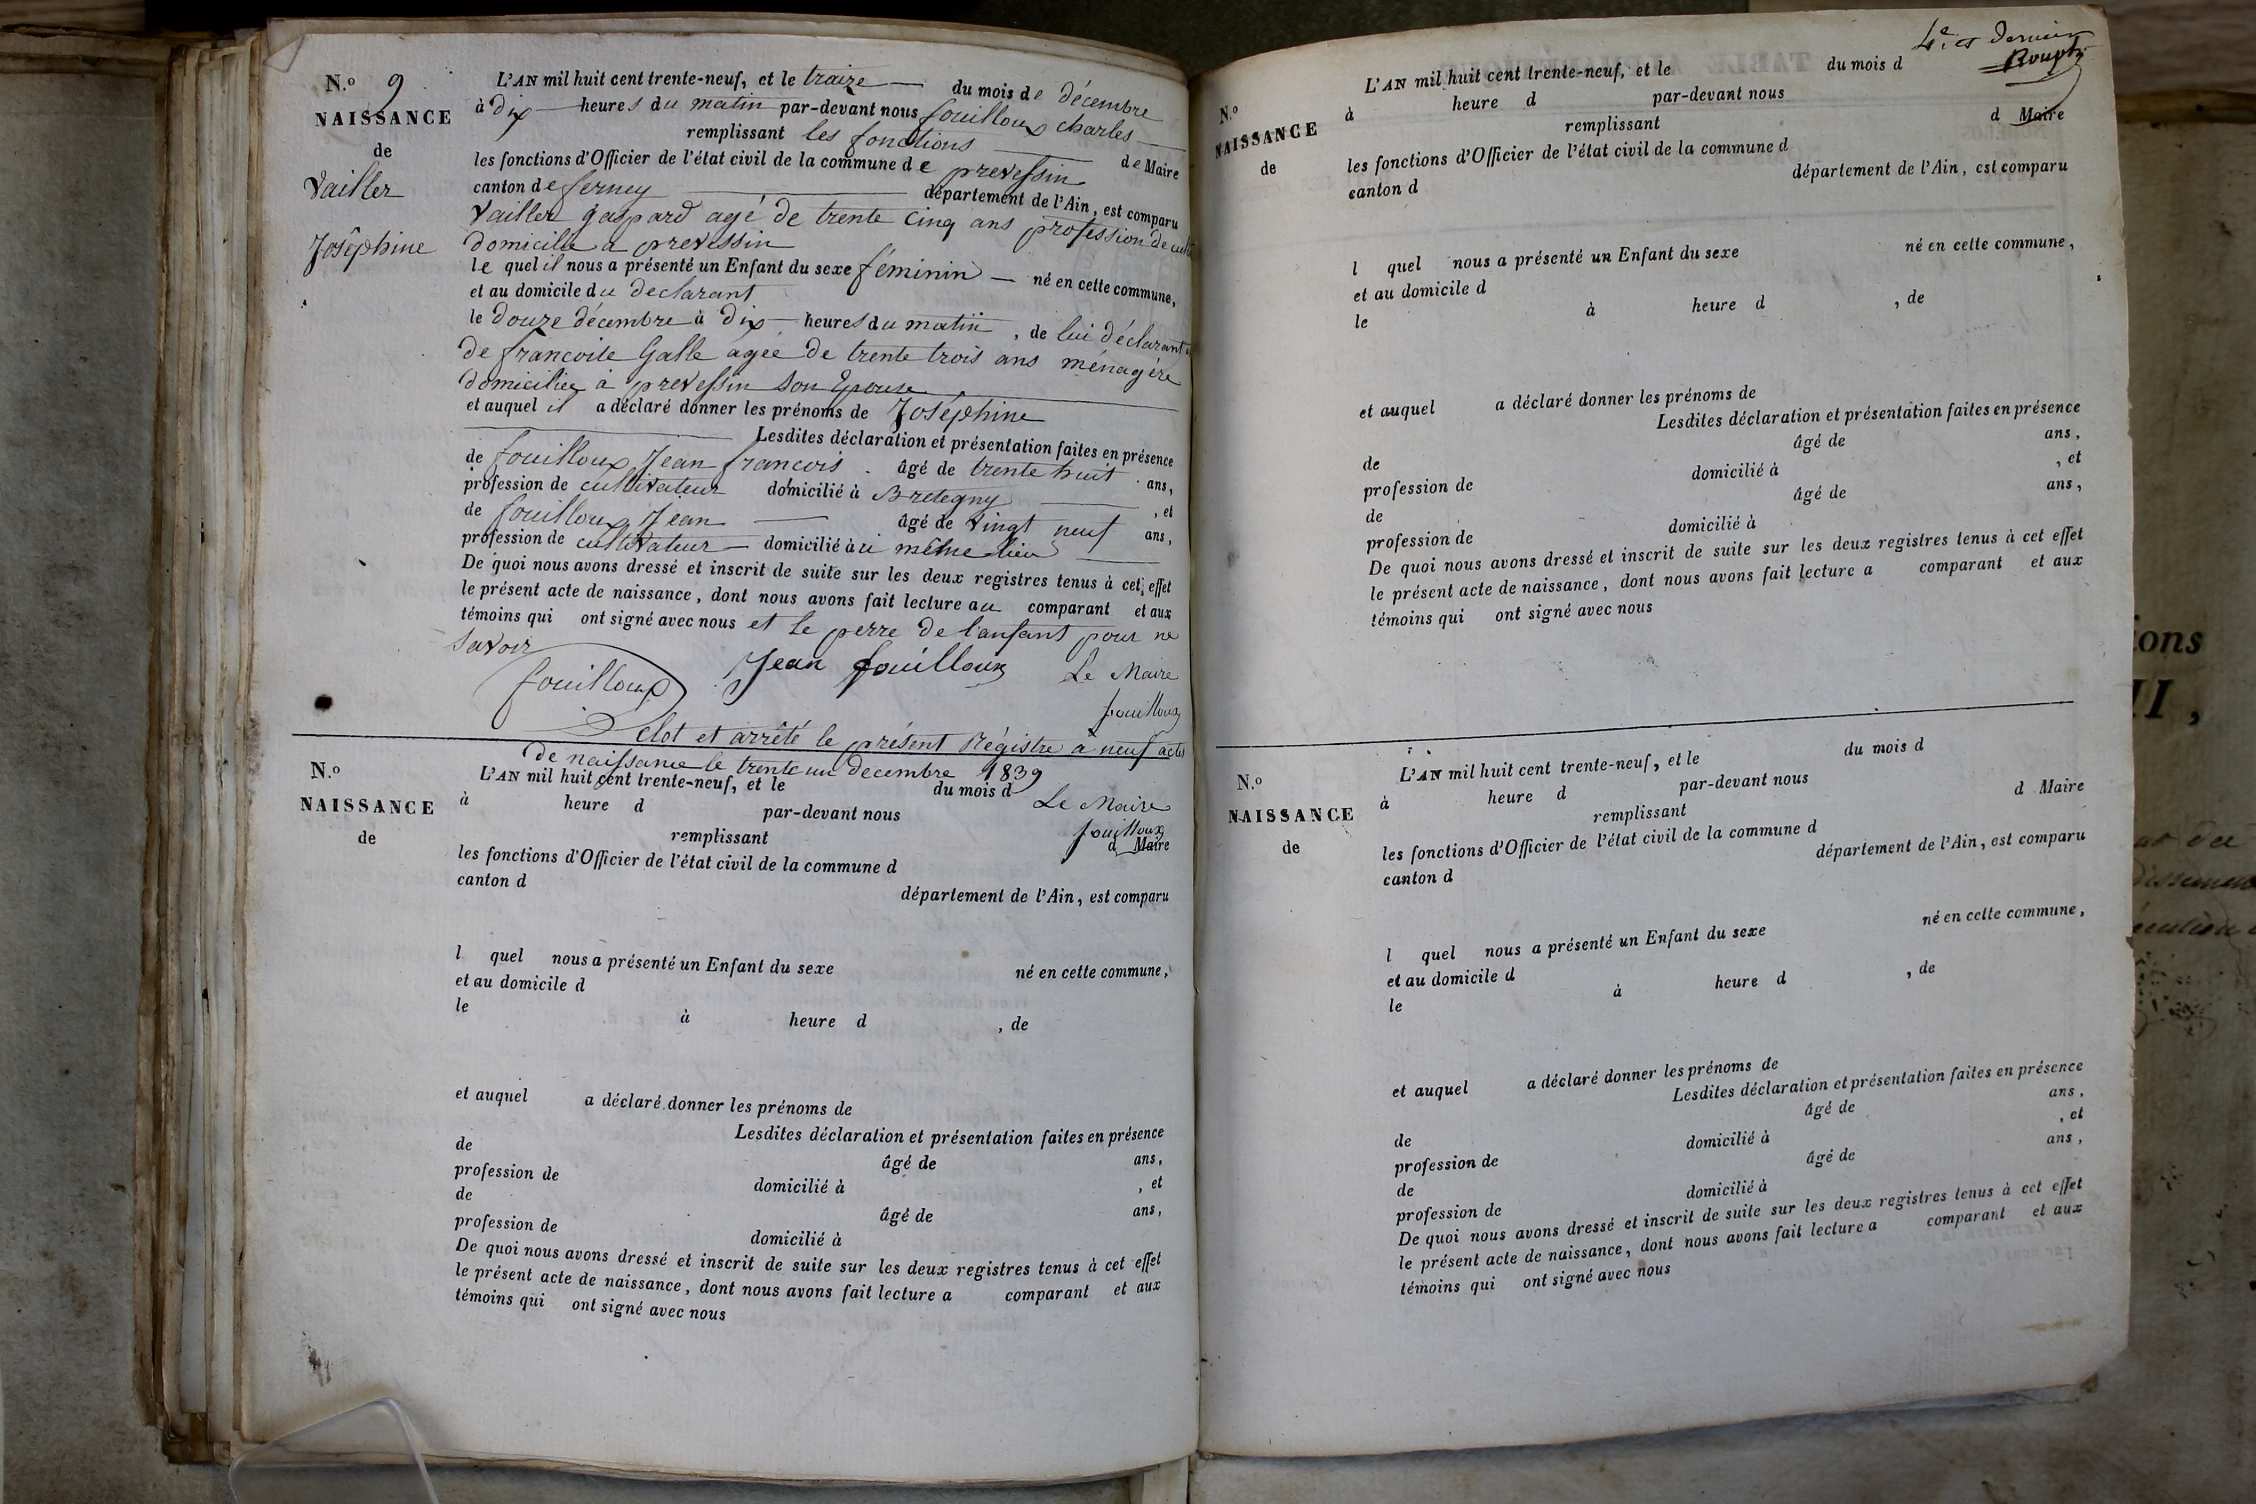 N.º 9
NAISSANCE
de
Vailler
Joséphine
L'AN mil huit cent trente-neuf, et le traize du mois de décembre
à dix heures du matin par-devant nous fouilloux charles
remplissant les fonctions de Maire
les fonctions d'Officier de l'état civil de la commune de prevessin
canton de ferney département de l'Ain, est comparu
Vailler gaspard agé de trente cinq ans profession de
domicilie a prevessin
le quel il nous a présenté un Enfant du sexe féminin né en cette commune,
et au domicile du declarant
le douze décembre à dix heures du matin, de lui déclarant
de francoise Galle agee de trente trois ans ménagére
domiciliee à prevessin son Epouse
et auquel il a déclaré donner les prénoms de Joséphine
Lesdites déclaration et présentation faites en présence
de fouilloux Jean francois âgé de trente huit ans,
profession de cultivateur domicilié à Bretegny, et
de fouilloux Jean âgé de vingt neuf ans,
profession de cultivateur domicilié à même lieu
De quoi nous avons dressé et inscrit de suite sur les deux registres tenus à cet effet
le présent acte de naissance, dont nous avons fait lecture au comparant et aux
témoins qui ont signé avec nous et le perre de l'enfant pour ne
savoir
fouilloux Jean fouilloux Le Maire
fouilloux
Clot et arrêté le présent Régistre à neuf actes
de naissance le trente un decembre 1839
Le Maire
fouilloux
N.º
NAISSANCE
de
L'AN mil huit cent trente-neuf, et le du mois d
à heure d par-devant nous
remplissant d Maire
les fonctions d'Officier de l'état civil de la commune d
canton d département de l'Ain, est comparu
l quel nous a présenté un Enfant du sexe né en cette commune,
et au domicile d
le à heure d , de
et auquel a déclaré donner les prénoms de
Lesdites déclaration et présentation faites en présence
de âgé de ans,
profession de domicilié à , et
de âgé de ans,
profession de domicilié à
De quoi nous avons dressé et inscrit de suite sur les deux registres tenus à cet effet
le présent acte de naissance, dont nous avons fait lecture a comparant et aux
témoins qui ont signé avec nous
4e et dernier
N.º
NAISSANCE
de
L'AN mil huit cent trente-neuf, et le du mois d
à heure d par-devant nous
remplissant d Maire
les fonctions d'Officier de l'état civil de la commune d
canton d département de l'Ain, est comparu
l quel nous a présenté un Enfant du sexe né en cette commune,
et au domicile d
le à heure d , de
et auquel a déclaré donner les prénoms de
Lesdites déclaration et présentation faites en présence
de âgé de ans,
profession de domicilié à , et
de âgé de ans,
profession de domicilié à
De quoi nous avons dressé et inscrit de suite sur les deux registres tenus à cet effet
le présent acte de naissance, dont nous avons fait lecture a comparant et aux
témoins qui ont signé avec nous
N.º
NAISSANCE
de
L'AN mil huit cent trente-neuf, et le du mois d
à heure d par-devant nous
remplissant d Maire
les fonctions d'Officier de l'état civil de la commune d
canton d département de l'Ain, est comparu
l quel nous a présenté un Enfant du sexe né en cette commune,
et au domicile d
le à heure d , de
et auquel a déclaré donner les prénoms de
Lesdites déclaration et présentation faites en présence
de âgé de ans,
profession de domicilié à , et
de âgé de ans,
profession de domicilié à
De quoi nous avons dressé et inscrit de suite sur les deux registres tenus à cet effet
le présent acte de naissance, dont nous avons fait lecture a comparant et aux
témoins qui ont signé avec nous
ions
II,